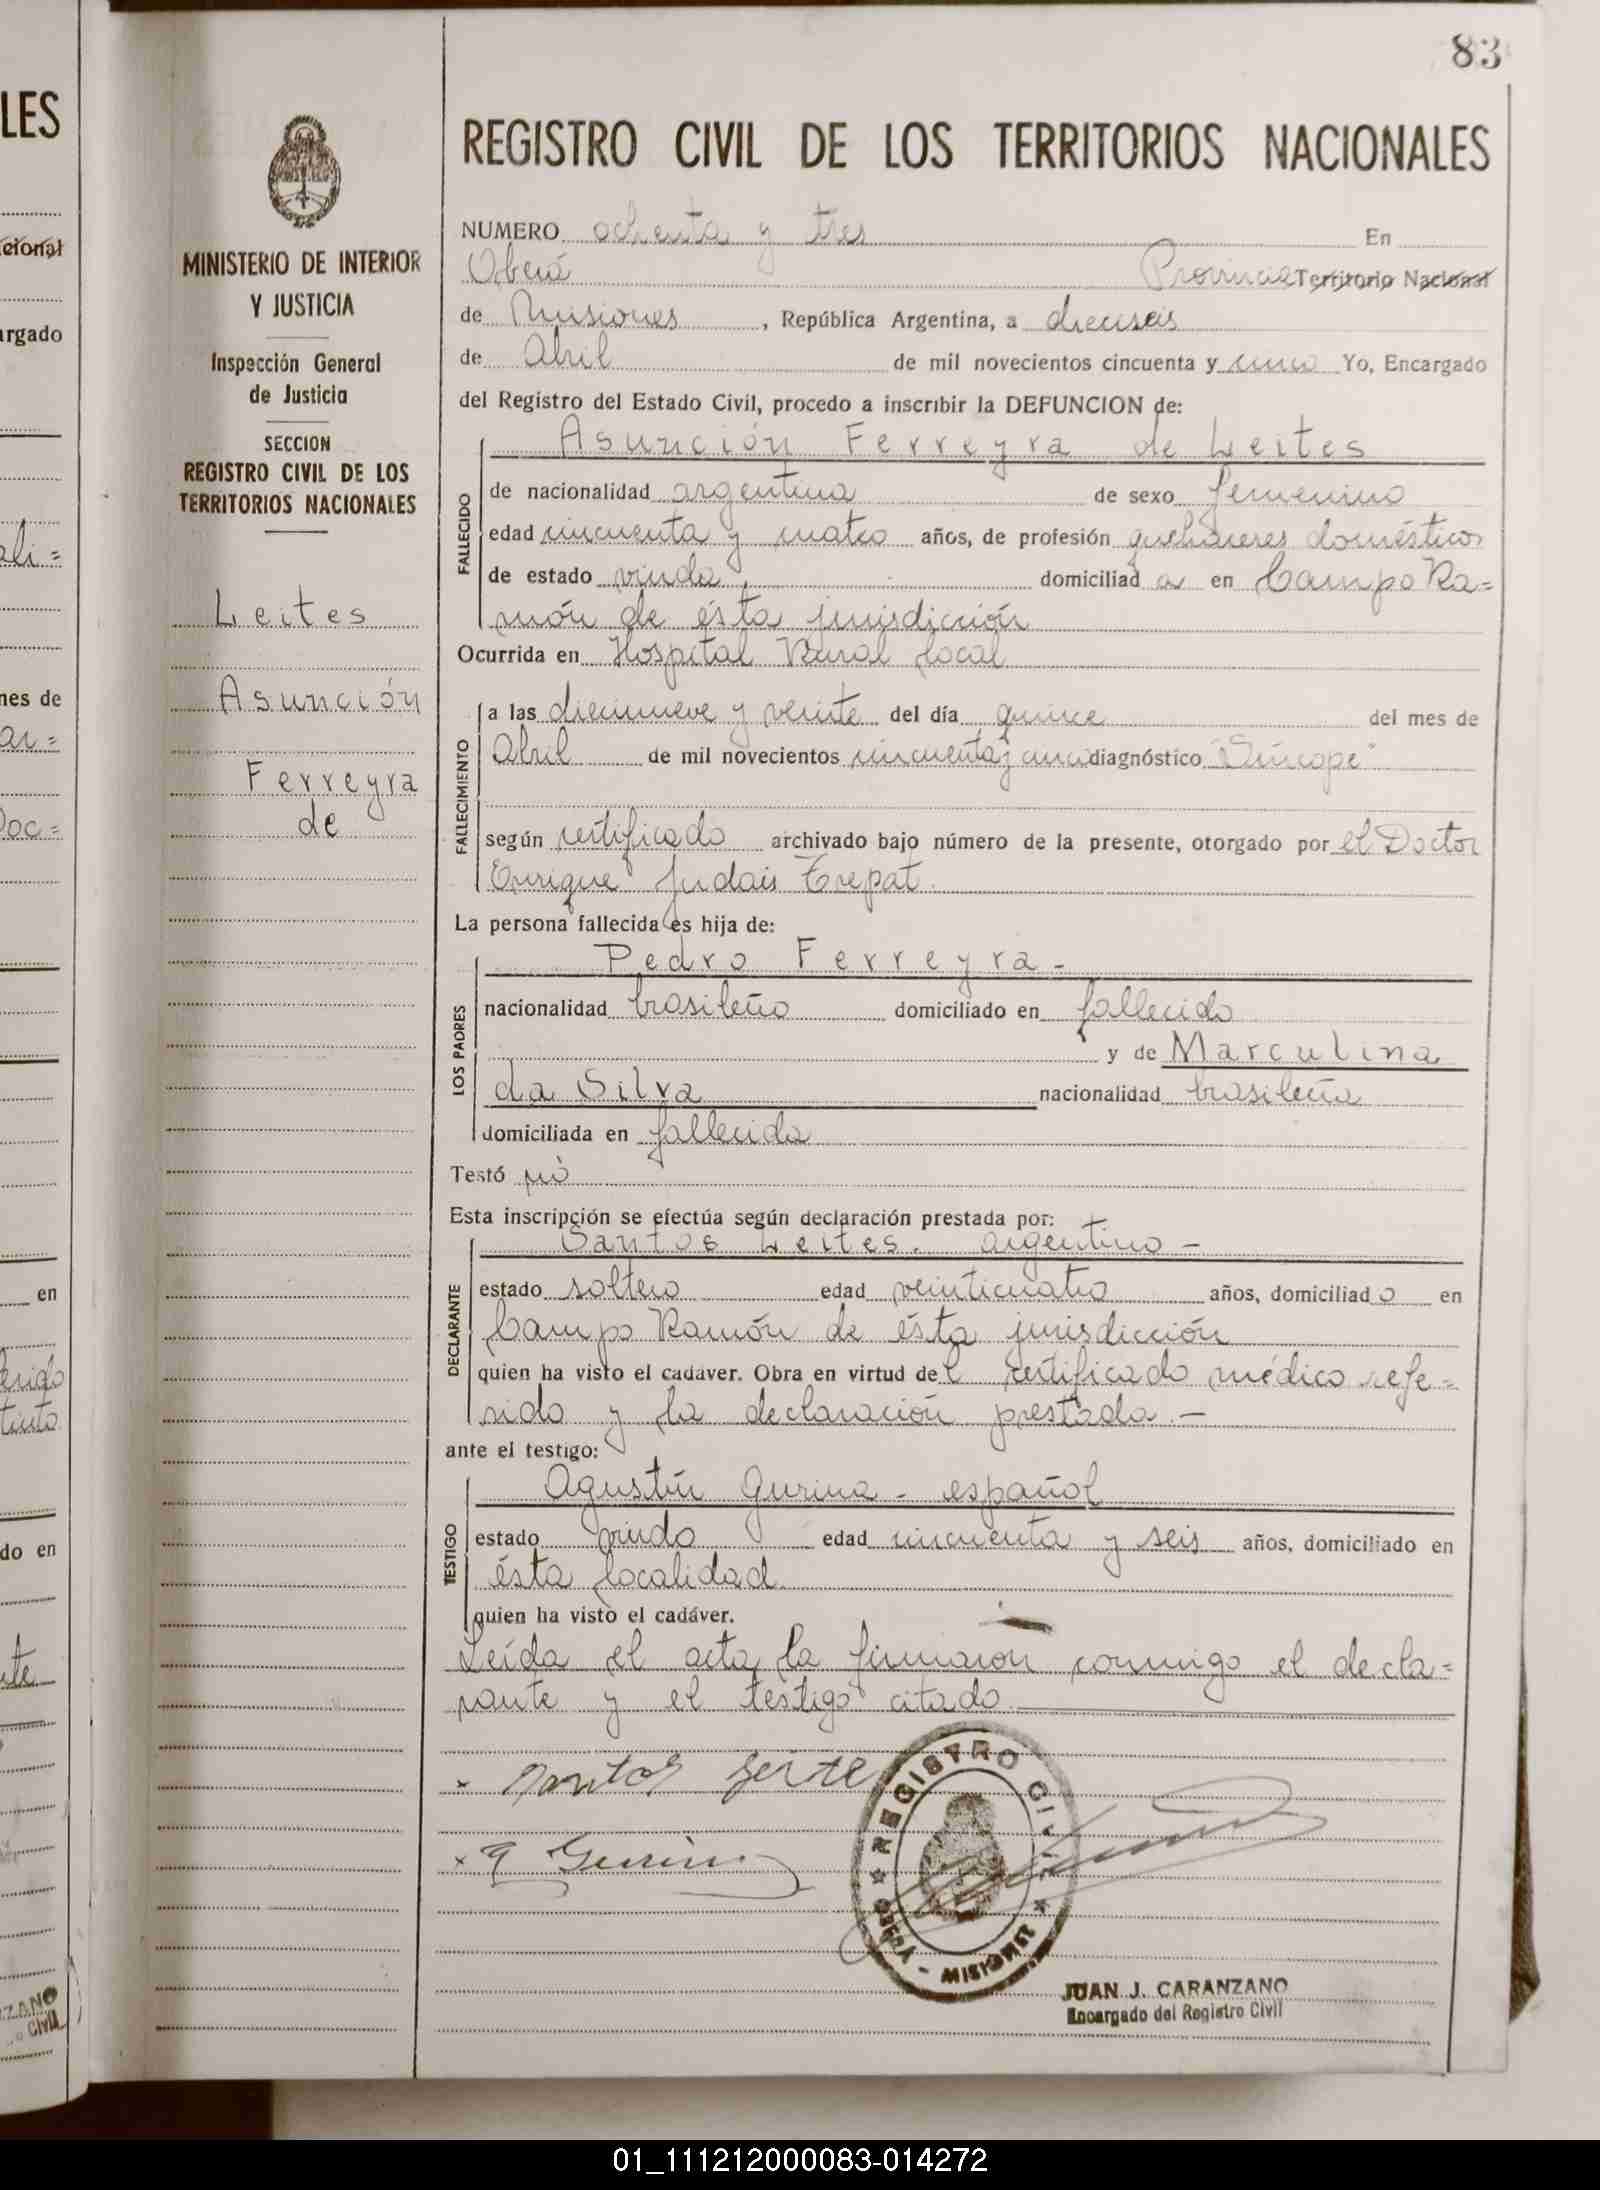 83
LES
REGISTRO CIVIL DE LOS TERRITORIOS NACIONALES
MINISTERIO DE INTERIOR
Y JUSTICIA
Inspección General
de Justicia
SECCION
REGISTRO CIVIL DE LOS
TERRITORIOS NACIONALES
Leites
Asunción
Ferreyra
de
NUMERO ochenta y tres En
Oberá Provincia Territorio Nacional
de Misiones, República Argentina, a dieciseis
de Abril de mil novecientos cincuenta y cinco Yo, Encargado
del Registro del Estado Civil, procedo a inscribir la DEFUNCION de:
Asunción Ferreyra de Leites
FALLECIDO
de nacionalidad argentina de sexo femenino
edad cincuenta y cuatro años, de profesión quehaceres domésticos
de estado viuda, domiciliada en Campo Ra=
món de ésta jurisdicción
Ocurrida en Hospital Rural local
FALLECIMIENTO
a las diecinueve y veinte del día quince del mes de
Abril de mil novecientos cincuenta y cinco diagnóstico "Síncope"
según certificado archivado bajo número de la presente, otorgado por el Doctor
Enrique Judais Trepat.
La persona fallecida es hija de:
LOS PADRES
Pedro Ferreyra -
nacionalidad brasileño domiciliado en fallecido
y de Marculina
da Silva nacionalidad brasileña
domiciliada en fallecida
Testó nó
Esta inscripción se efectúa según declaración prestada por:
DECLARANTE
Santos Leites. argentino -
estado soltero edad veinticuatro años, domiciliado en
Campo Ramón de ésta jurisdicción
quien ha visto el cadáver. Obra en virtud del certificado médico refe=
rido y la declaración prestada. -
ante el testigo:
TESTIGO
Agustín Gurina - español
estado viudo edad cincuenta y seis años, domiciliado en
ésta localidad.
quien ha visto el cadáver.
Leída el acta la firmaron conmigo el decla=
rante y el testigo citado.
x Santos Leites
x A Gurina
REGISTRO CIVIL
OBERA - MISIONES
JUAN J. CARANZANO
Encargado del Registro Civil
01_111212000083-014272